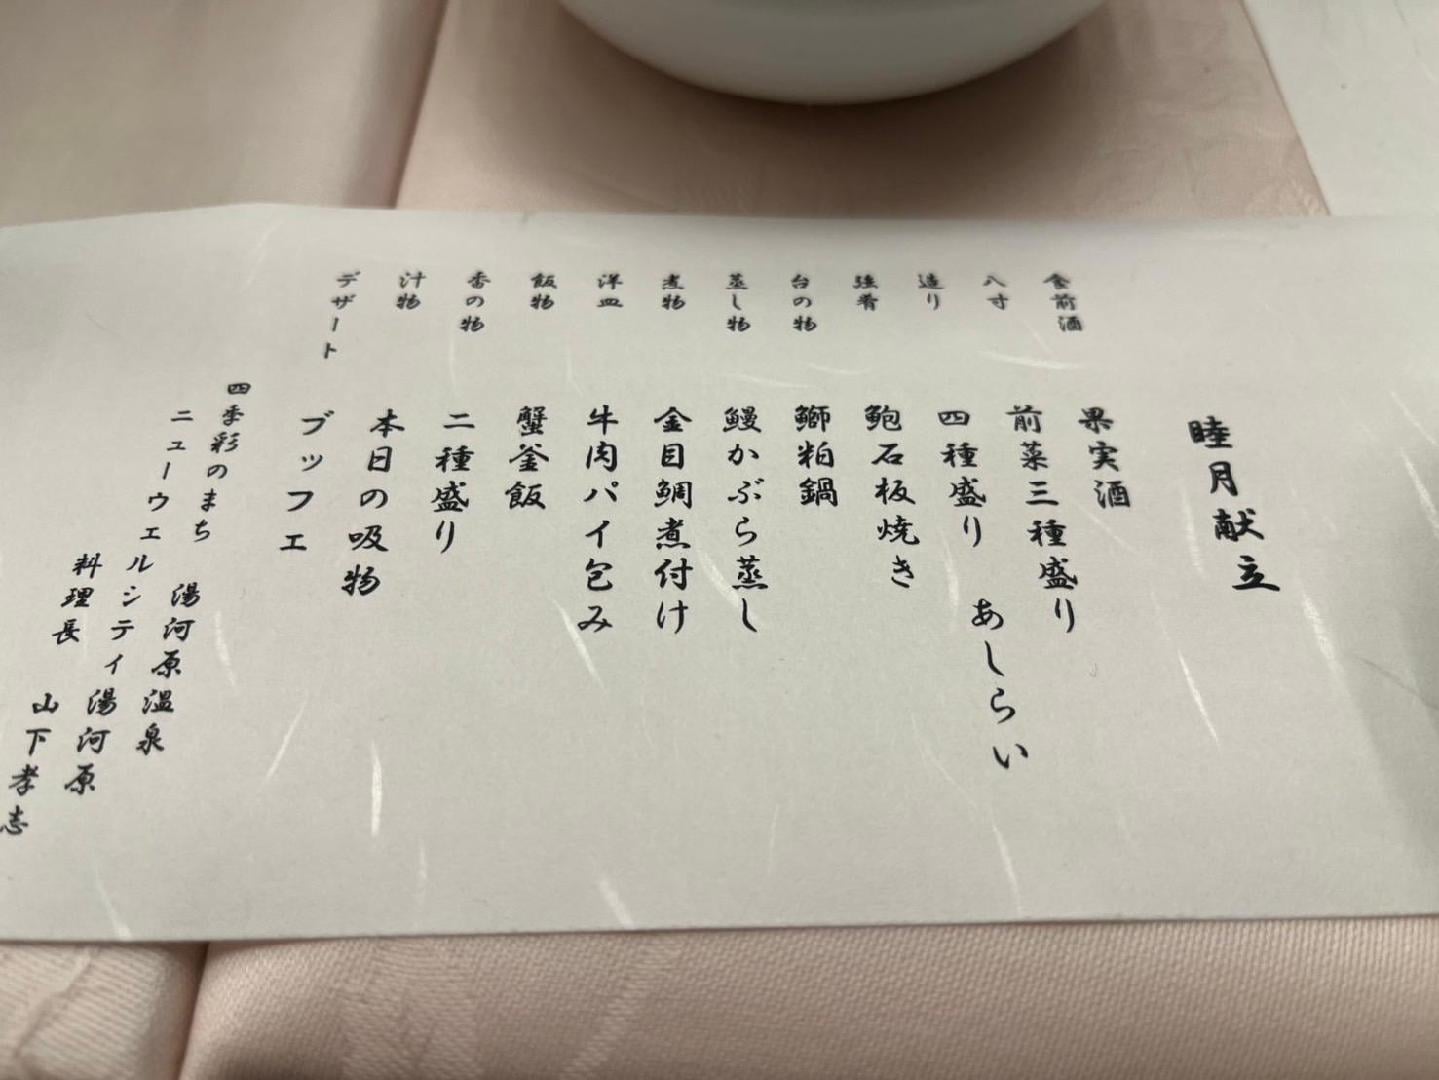 睦月献立
食前酒 果実酒
八寸 前菜三種盛り
造り 四種盛り あしらい
強肴 鮑石板焼き
台の物 鰤粕鍋
蒸し物 鰻かぶら蒸し
煮物 金目鯛煮付け
洋皿 牛肉パイ包み
飯物 蟹釜飯
香の物 二種盛り
汁物 本日の吸物
デザート ブッフェ
四季彩のまち 湯河原温泉
ニューウェルシティ湯河原
料理長 山下孝志